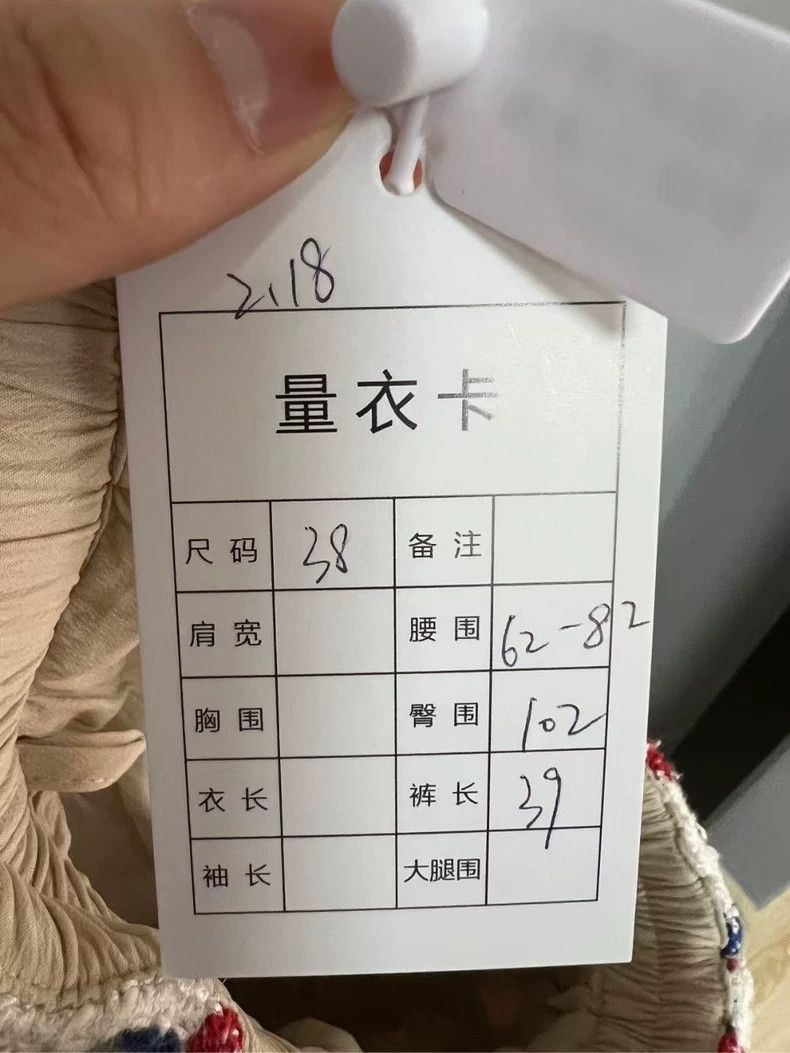 2.18
量衣卡
尺码 38 备注
肩宽 腰围 62-82
胸围 臀围 102
衣长 裤长 39
袖长 大腿围